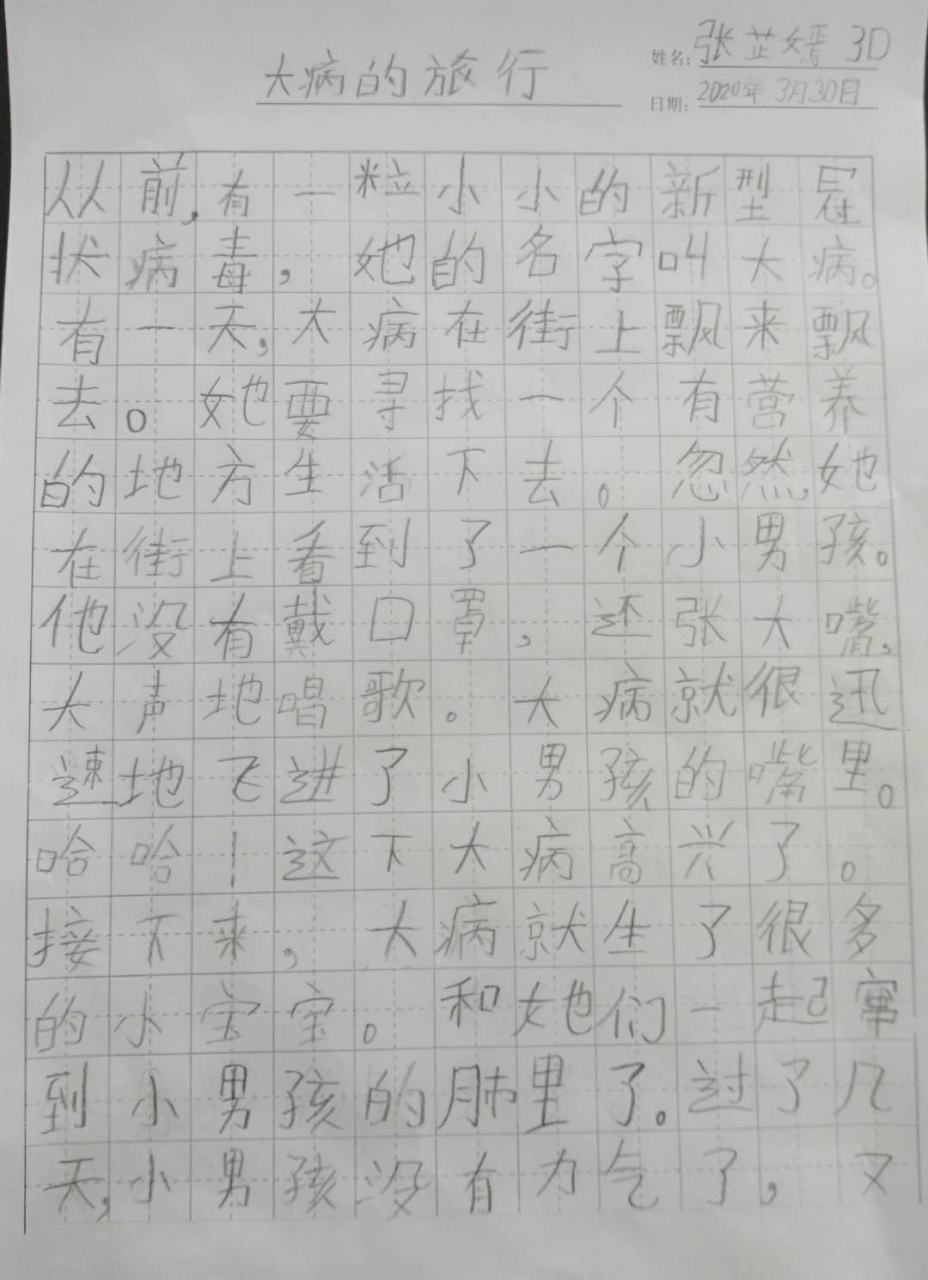 大病的旅行
姓名: 张芷嫣 3D
日期: 2020年 3月30日
从前,有一粒小小的新型冠
状病毒,她的名字叫大病。
有一天,大病在街上飘来飘
去。她要寻找一个有营养
的地方生活下去。忽然,她
在街上看到了一个小男孩。
他没有戴口罩,还张大嘴,
大声地唱歌。大病就很迅
速地飞进了小男孩的嘴里。
哈哈!这下大病高兴了。
接下来,大病就生了很多
的小宝宝。和她们一起
到小男孩的肺里了。过了几
天,小男孩没有力气了,又